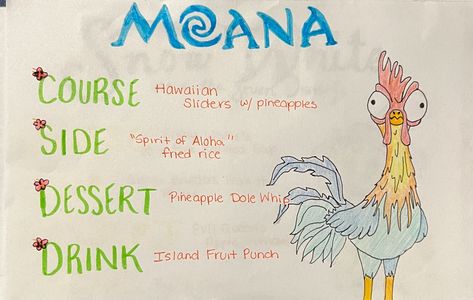 MOANA
COURSE Hawaiian
Sliders w/ pineapples
SIDE "Spirit of Aloha"
fried rice
DESSERT Pineapple Dole Whip
DRINK Island Fruit Punch